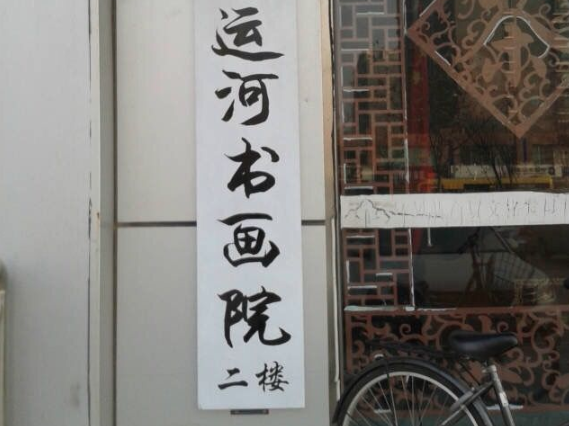 运河书画院
二楼